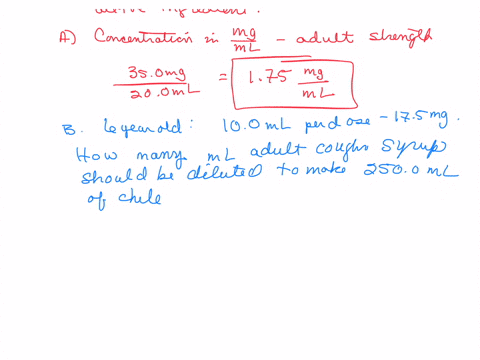 active ingredient.
A) Concentration in mg/mL - adult strength
35.0mg / 20.0mL = 1.75 mg/mL
B. 6 year old: 10.0 mL per dose - 17.5 mg.
How many mL adult cough syrup
should be diluted to make 250.0 mL
of chile